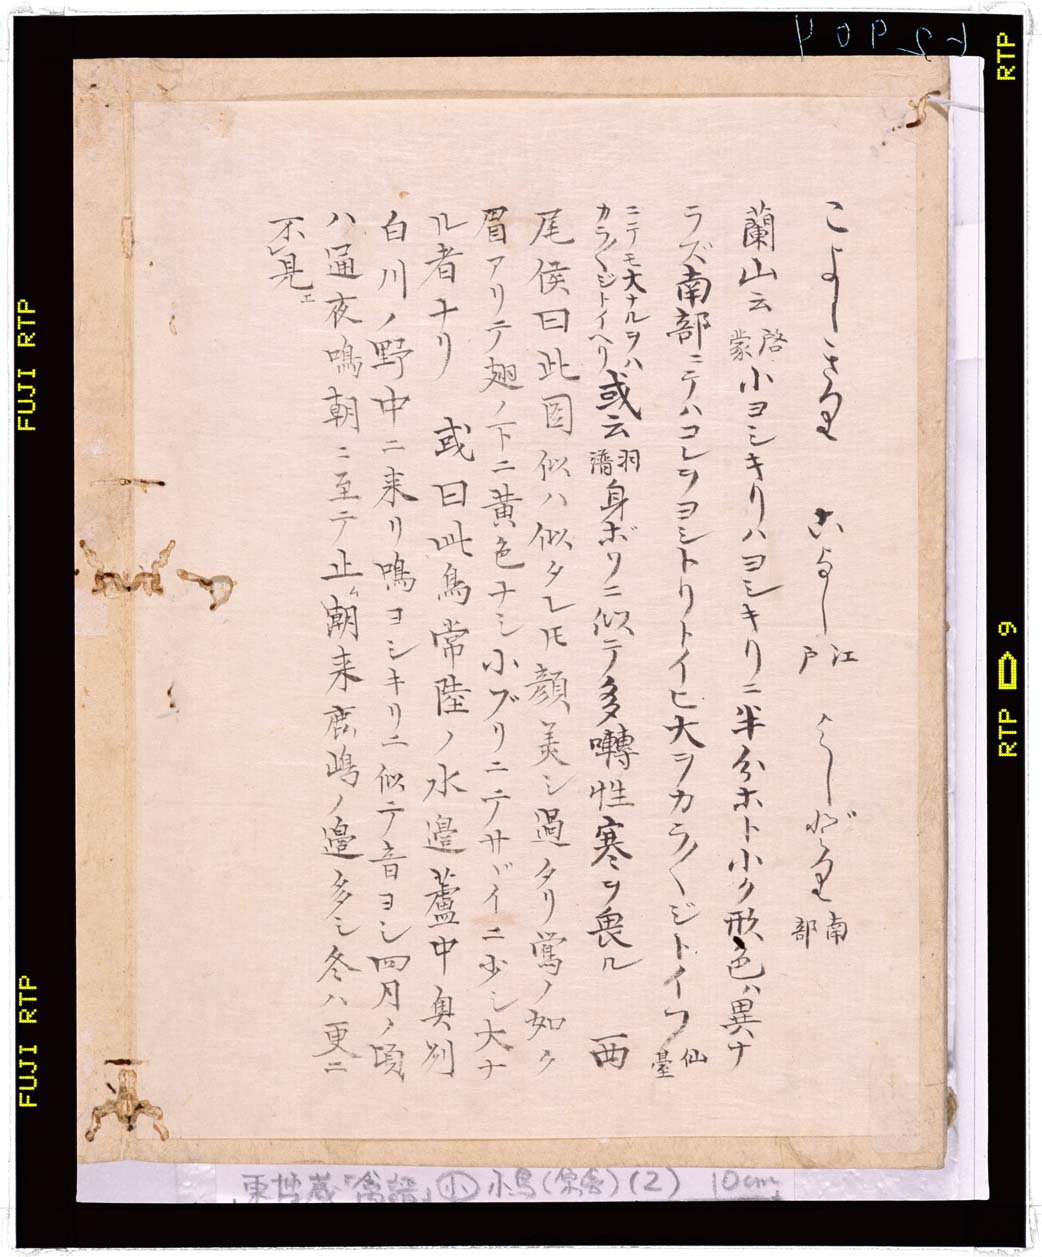 こよしきり　こよし 江戸　よしどり 南部
蘭山云 啓蒙 小ヨシキリハヨシキリニ半分ホト小ク形色ハ異ナ
ラズ南部ニテハコレヲヨシトリトイヒ大ヲカラ〳〵ジトイフ 仙臺
ニテモ大ナルヲハカラ〳〵ジトイヘリ 或云 羽譜 身ボソニ似テ多囀性寒ヲ畏ル　西
尾侯曰此圖似ハ似タレ𪜈顔美シ過タリ鶯ノ如ク
眉アリテ翅ノ下ニ黄色ナシ小ブリニテサヾイニ少シ大ナ
ル者ナリ　或曰此鳥常陸ノ水邉蘆中奥州
白川ノ野中ニ来リ鳴ヨシキリニ似テ音ヨシ四月ノ頃
ハ通夜鳴朝ニ至テ止ム潮来鹿嶋ノ邉多シ冬ハ更ニ
不レ見エ
FUJI RTP
FUJI RTP
FUJI RTP
RTP
RTP 9
東博蔵「禽譜」 小鳥 (2) 10cm